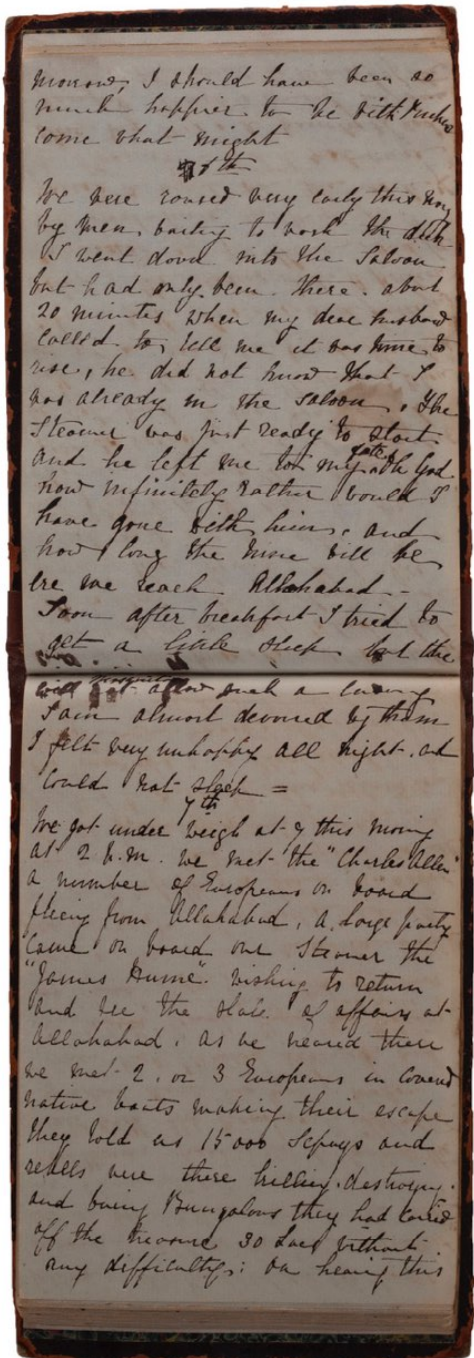 morrow, I should have been so
much happier to be with
come what might
6th
We were roused very early this
by men, waiting to wash the deck
I went down into the Saloon
but had only been there about
20 minutes when my dear husband
called to tell me it was time to
rise, he did not know that I
was already in the saloon, the
Steamer was just ready to start
and he left me to my fate, oh God
how infinitely rather would I
have gone with him, and
how long the time will be
ere we reach Allahabad -
Soon after breakfast I tried to
get a little sleep but the
mosquitoes
will not allow such a luxury
I am almost devoured by them
I felt very unhappy all night, and
could not sleep =
7th
We got under weigh at 7 this morning
at 2 P.M. we met the "Charles Allen"
a number of Europeans on board
flieing from Allahabad, a large party
came on board our Steamer the
"James Hume" wishing to return
and see the state of affairs at
Allahabad, as we neared there
we met 2 or 3 Europeans in covered
native boats making their escape
they told us 15000 Sepoys and
rebells were there killing, destroying,
and buring Bungalows they had carried
off the treasure 30 Lacs without
any difficulty; on hearing this